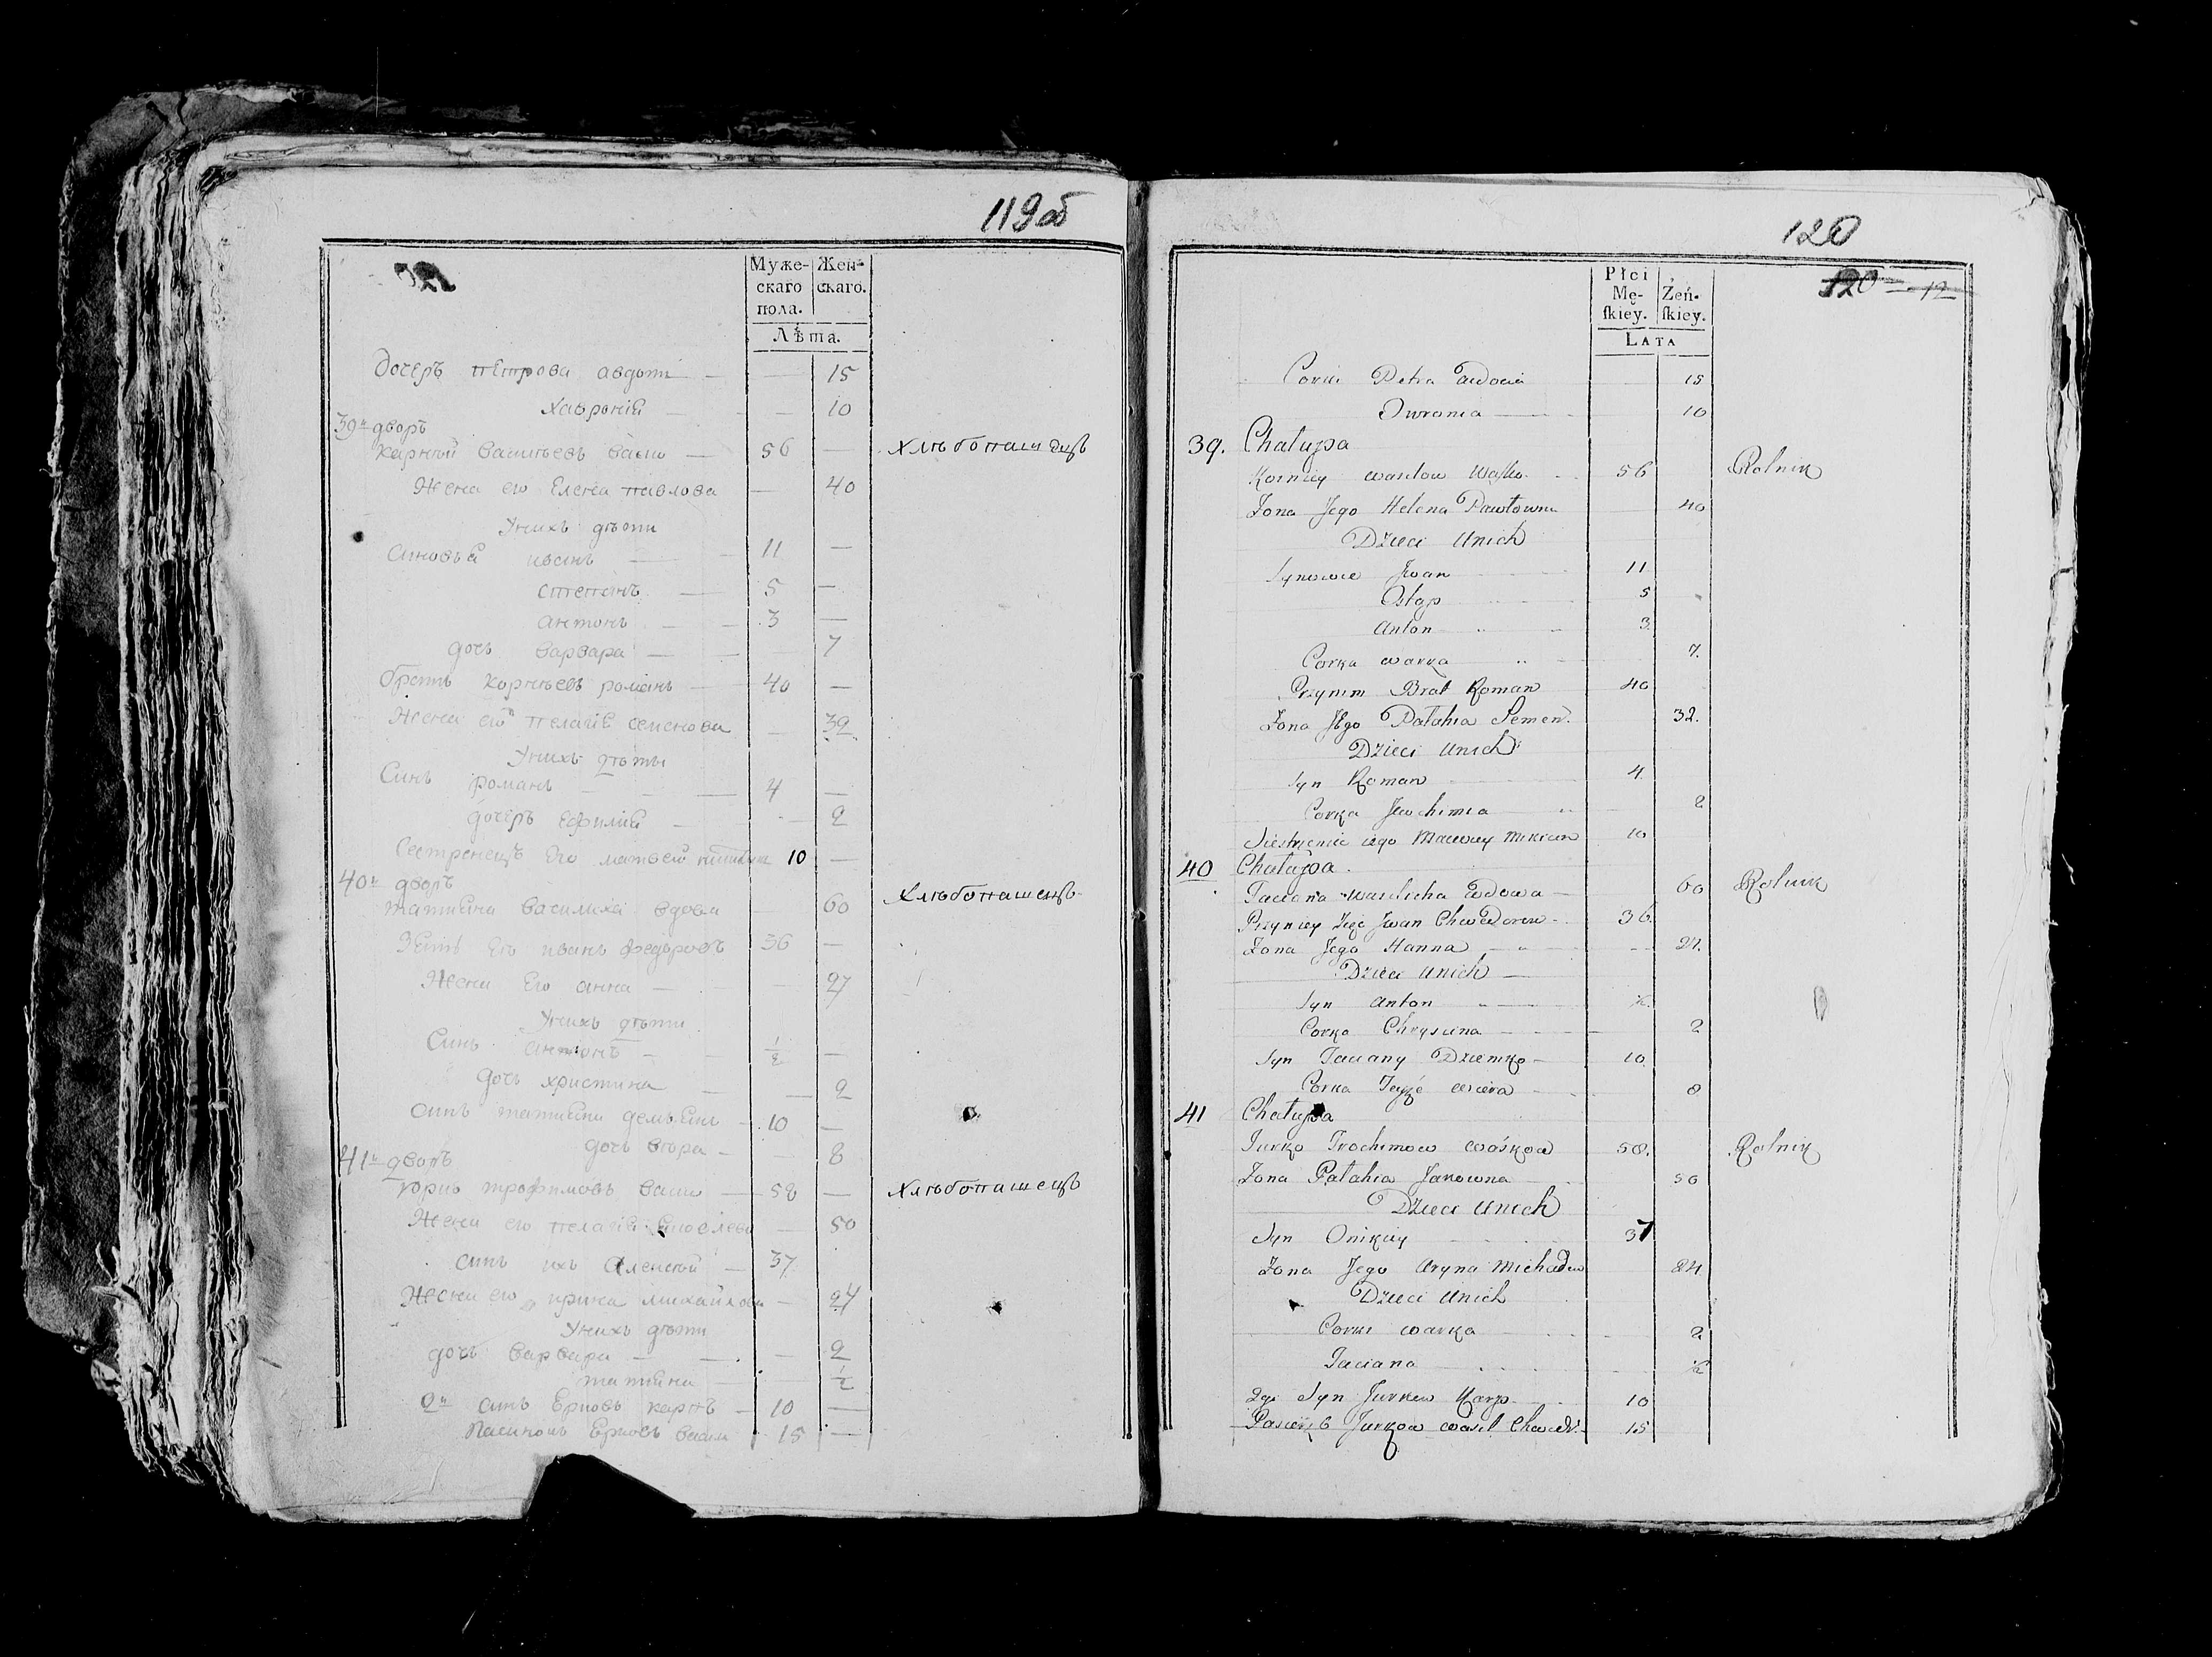 119об
Муже-
скаго
пола.
Жен-
скаго.
Лѣта.
дочерѣ петрова авдоти — — 15
Хавронїй — — 10
39й дворъ
Карнѣй Васильевъ — 56 — Хлѣбопашецъ
Жена его Елена павлова — 40
У нихъ дѣти
Синовья иванъ — 11 —
степанъ — 5 —
антонъ — 3 —
дочь варвара — — 7
братъ корнѣевъ романъ — 40 —
Жена его пелагіе семенова — 32
У нихъ дѣти
Синъ романъ — 4 —
дочерь Ефимїя — — 2
Сестренецъ Его матвей 10 —
40й дворъ
татияна василиха вдова — 60 Хлѣбопашецъ
Зять Ея иванъ федоровъ 36 —
Жена Его анна — — 27
У нихъ дѣти
Синъ антонъ — 1/2 —
дочь христина — — 2
синъ татияни демьянъ — 10 —
дочь вѣра — — 8
41й дворъ
трофимовъ — 58 — Хлѣбопашецъ
Жена его пелагія — 50
синъ ихъ — 37
Жена его ирина михайлова — 24
У нихъ дѣти
дочь варвара — — 2
татияна — 1/2
2й синъ Ерковъ карпъ — 10 —
Пасинокъ Ерковъ 15 —
120
120 12
Płci
Mę-
ſkiey.
Żeń-
ſkiey.
LATA
Corki Petra 15
10
39. Chałupa
Korniey Wasilow Waśko 56 Rolnik
Zona Jego Helena Pawłowna 40
Dzieci Unich
Synowie Jwan 11
Ostap 5
Anton 3
Corka Warka 7.
Brat Roman 40
Zona Jego Pałahia Semen. 32.
Dzieci Unich
Syn Roman 4
Corka Jewchimia 2
10
40 Chałupa
Taciana Wasilicha Wdowa — 60 Rolnik
Jwan 36
Zona Jego Hanna — 27.
Dzieci Unich —
Syn Anton ½
Corka Chrystina 2
Syn Taciany Dziemko — 10
Corka Teyże Wiera 8
41 Chałupa
Jurko Trochimow Wośkow 58. Rolnik
Zona Pałahia Jakowna 50
Dzieci Unich
Syn Onikiey 37
Zona Jego Aryna 24
Dzieci Unich
Corki Warka 2
Taciana ½
2gi Syn Jurkow Karp 10
Jurkow Wasil 15